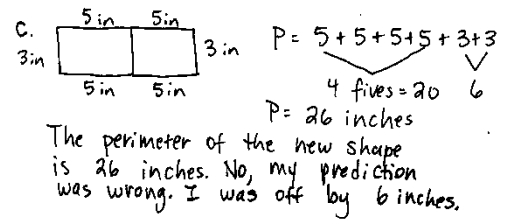 C.
5 in 5 in
3 in
3 in
5 in 5 in
P = 5 + 5 + 5 + 5 + 3 + 3
4 fives = 20 6
P = 26 inches
The perimeter of the new shape
is 26 inches. No, my prediction
was wrong. I was off by 6 inches.